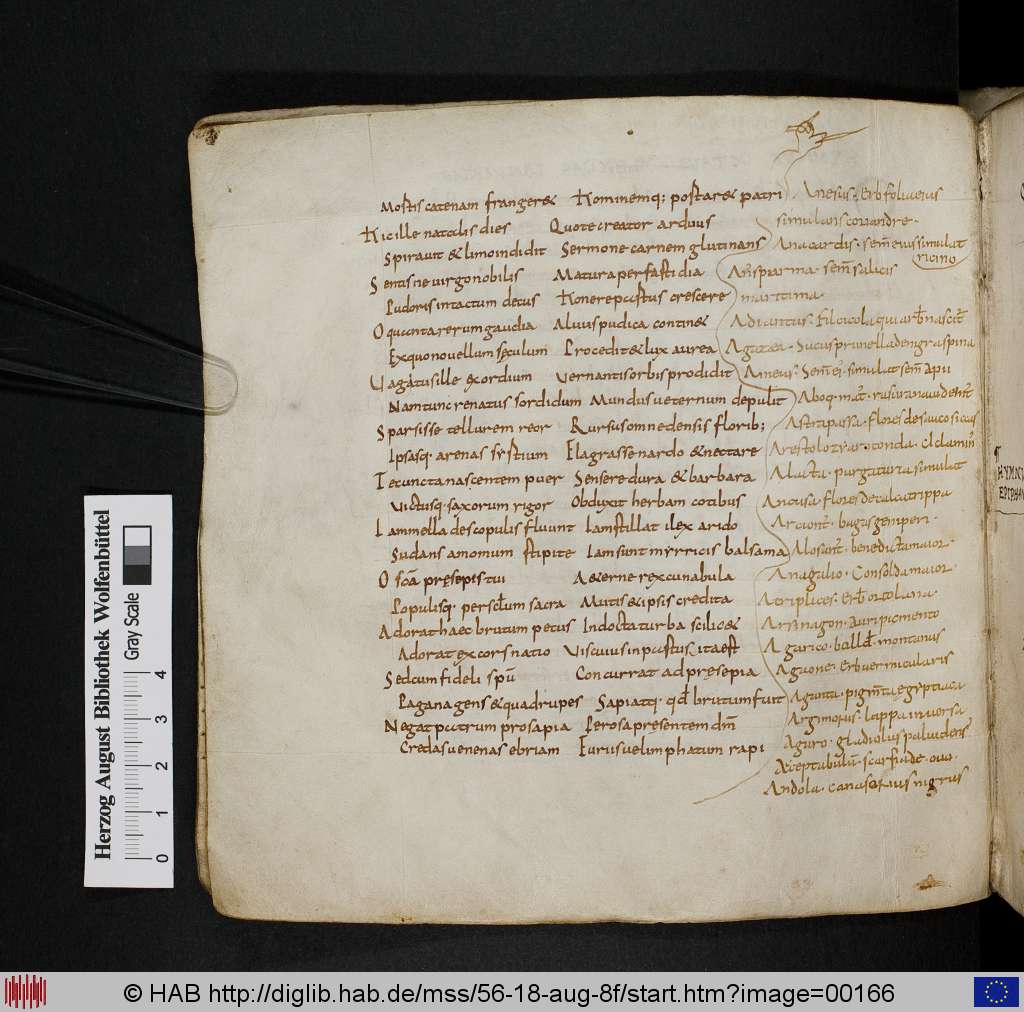 Mostis catenam frangere& Hominemq; postare& patri
Hic ille natalis dies Quo te creator arduus
Spirauit & limo indidit Sermone carnem glutinans
Sentisne uirgo nobilis Matura per fastidia
Pudoris intactum decus Honere partus crescere
O quanta rerum gaudia Aluus pudica contin&
Ex quo nouellum sęculum Procedit & lux aurea
Uagatus ille exordium Uernantis orbis prodidit
Nam tunc renatus sordidum Mundus ueternum depulit
Sparsisse tellurem reor Rursus omne densis florib;
Ipsasq. arenas syrtium Flagrasse nardo & nectare
Te cuncta nascentem puer Sensere dura & barbara
Uictusq. saxorum rigor Obduxit herbam cotibus
Iam mella de scopulis fluunt Iam stillat ilex arido
Sudans amomum stipite Iam sunt myrricis balsama
O scā pręsepis tui Aeterne rex cunabula
Populisq. per sclum sacra Mutis & ipsis credita
Adorat haec brutum pecus Indocta turba scilic&
Adorat excors natio Uis cuius in pastu sita est
Sed cum fideli spū Concurrat ad pręsepia
Pagana gens & quadrupes Sapiatq. qd brutum fuit
Negat patrum prosapia Perosa presentem dm̄
Credas uenenis ebriam Furiisue lymphatam rapi
Anesus. Erb foliu eius
simulans coriandre.
Anacardis. sem̄ eius simulat
ricino
sem̄ salicis
maritima
Adiantus. Filcicola qui arb nascit
Agazea. Sucus prunella de nigra spina
Aneus. Sem̄ ei. simulat sem̄ apii
Astrapassa. Flores de sauco siccus
Alacta. purgatura simulat
Ancusa. flores de calcatrippa
benedicta maior.
Anagalio. Consolda maior.
Atriplices. Erb ortolana.
Arsinagon. Auripicmento
Agarico. montanus
Agaone. Erb uermicularis
Aganta. pigm̄ta egyptiaca
Argimonis. lappa inuersa
Aguro. gladiolus paludens
Aceptabulū. scarfia de oua.
Andola. niger
HYMN
EPIPHAN
Herzog August Bibliothek Wolfenbüttel
Gray Scale
0 1 2 3 4
© HAB http://diglib.hab.de/mss/56-18-aug-8f/start.htm?image=00166